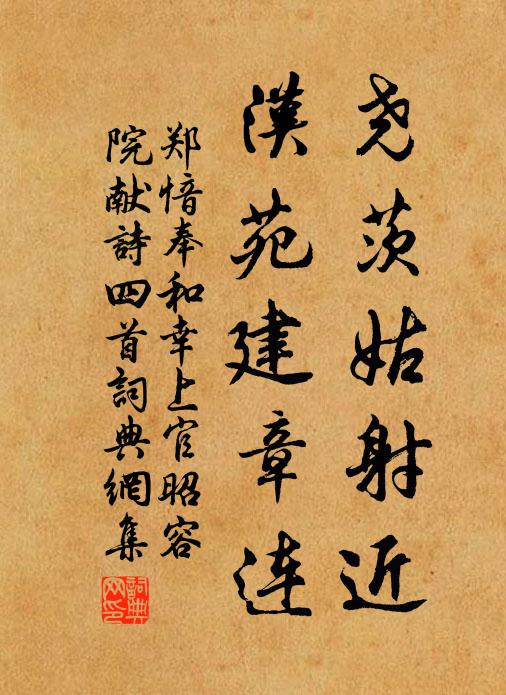 尧茨姑射近
漢苑建章连
郑愔奉和幸上官昭容
院献詩四首詞典網集
詞典网印